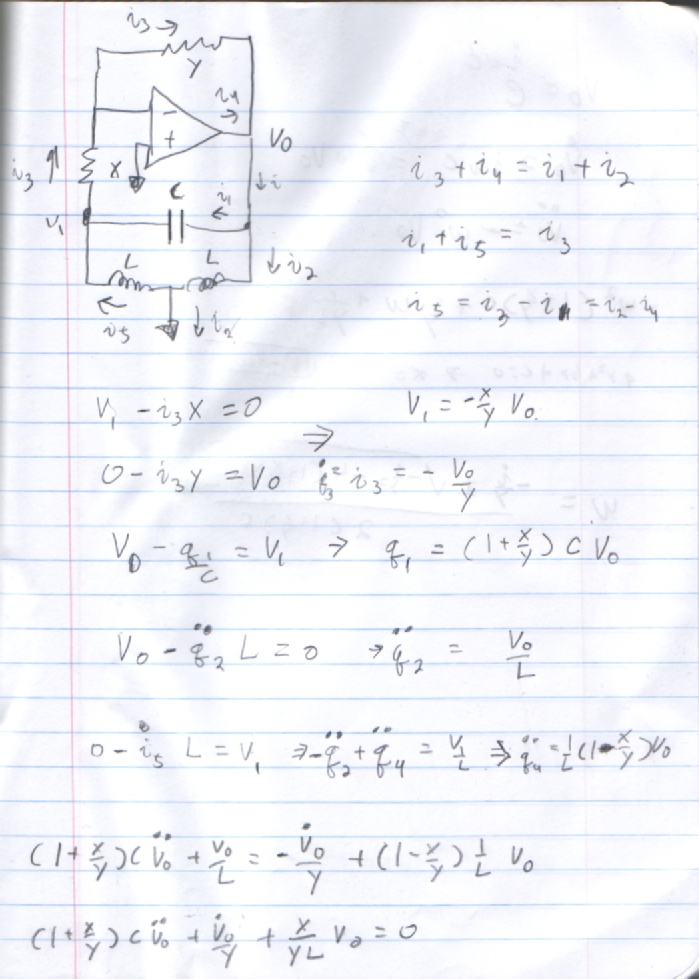 i₃ →
Y
i₄ →
−
+
V₀
i₃ ↑
X
↓ i
C
i₁ ←
V₁
L
L
↓ i₂
← i₅
↓ i₂
i₃ + i₄ = i₁ + i₂
i₁ + i₅ = i₃
i₅ = i₃ − i₁ = i₂ − i₄
V₁ − i₃X = 0 ⇒ V₁ = −x/y V₀
0 − i₃Y = V₀ q̇₃ = i₃ = − V₀/Y
V₀ − q₁/C = V₁ → q₁ = (1 + x/y) C V₀
V₀ − q̈₂ L = 0 → q̈₂ = V₀/L
0 − i̇₅ L = V₁ ⇒ −q̈₂ + q̈₄ = V₁/L ⇒ q̈₄ = 1/L (1 − x/y) V₀
(1 + x/y) C V̈₀ + V₀/L = − V̇₀/Y + (1 − x/y) 1/L V₀
(1 + x/y) C V̈₀ + V̇₀/Y + X/YL V₀ = 0